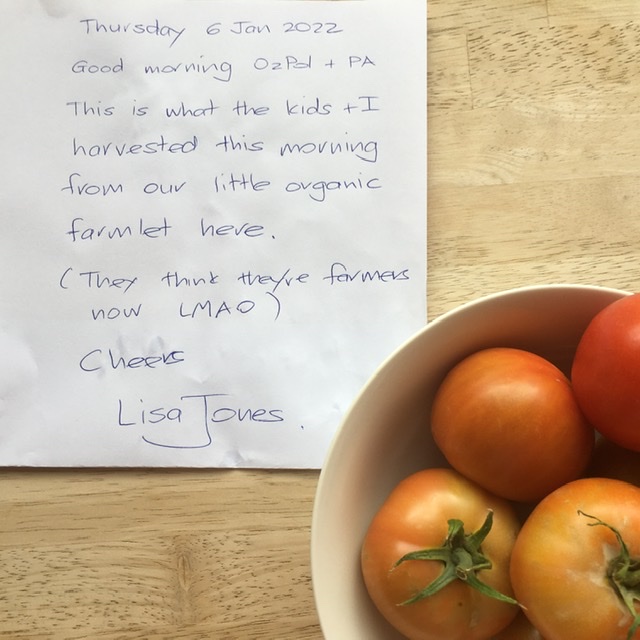 Thursday 6 Jan 2022
Good morning OzPol + PA
This is what the kids + I
harvested this morning
from our little organic
farmlet here.
(They think they're farmers
now LMAO)
Cheers
Lisa Jones.